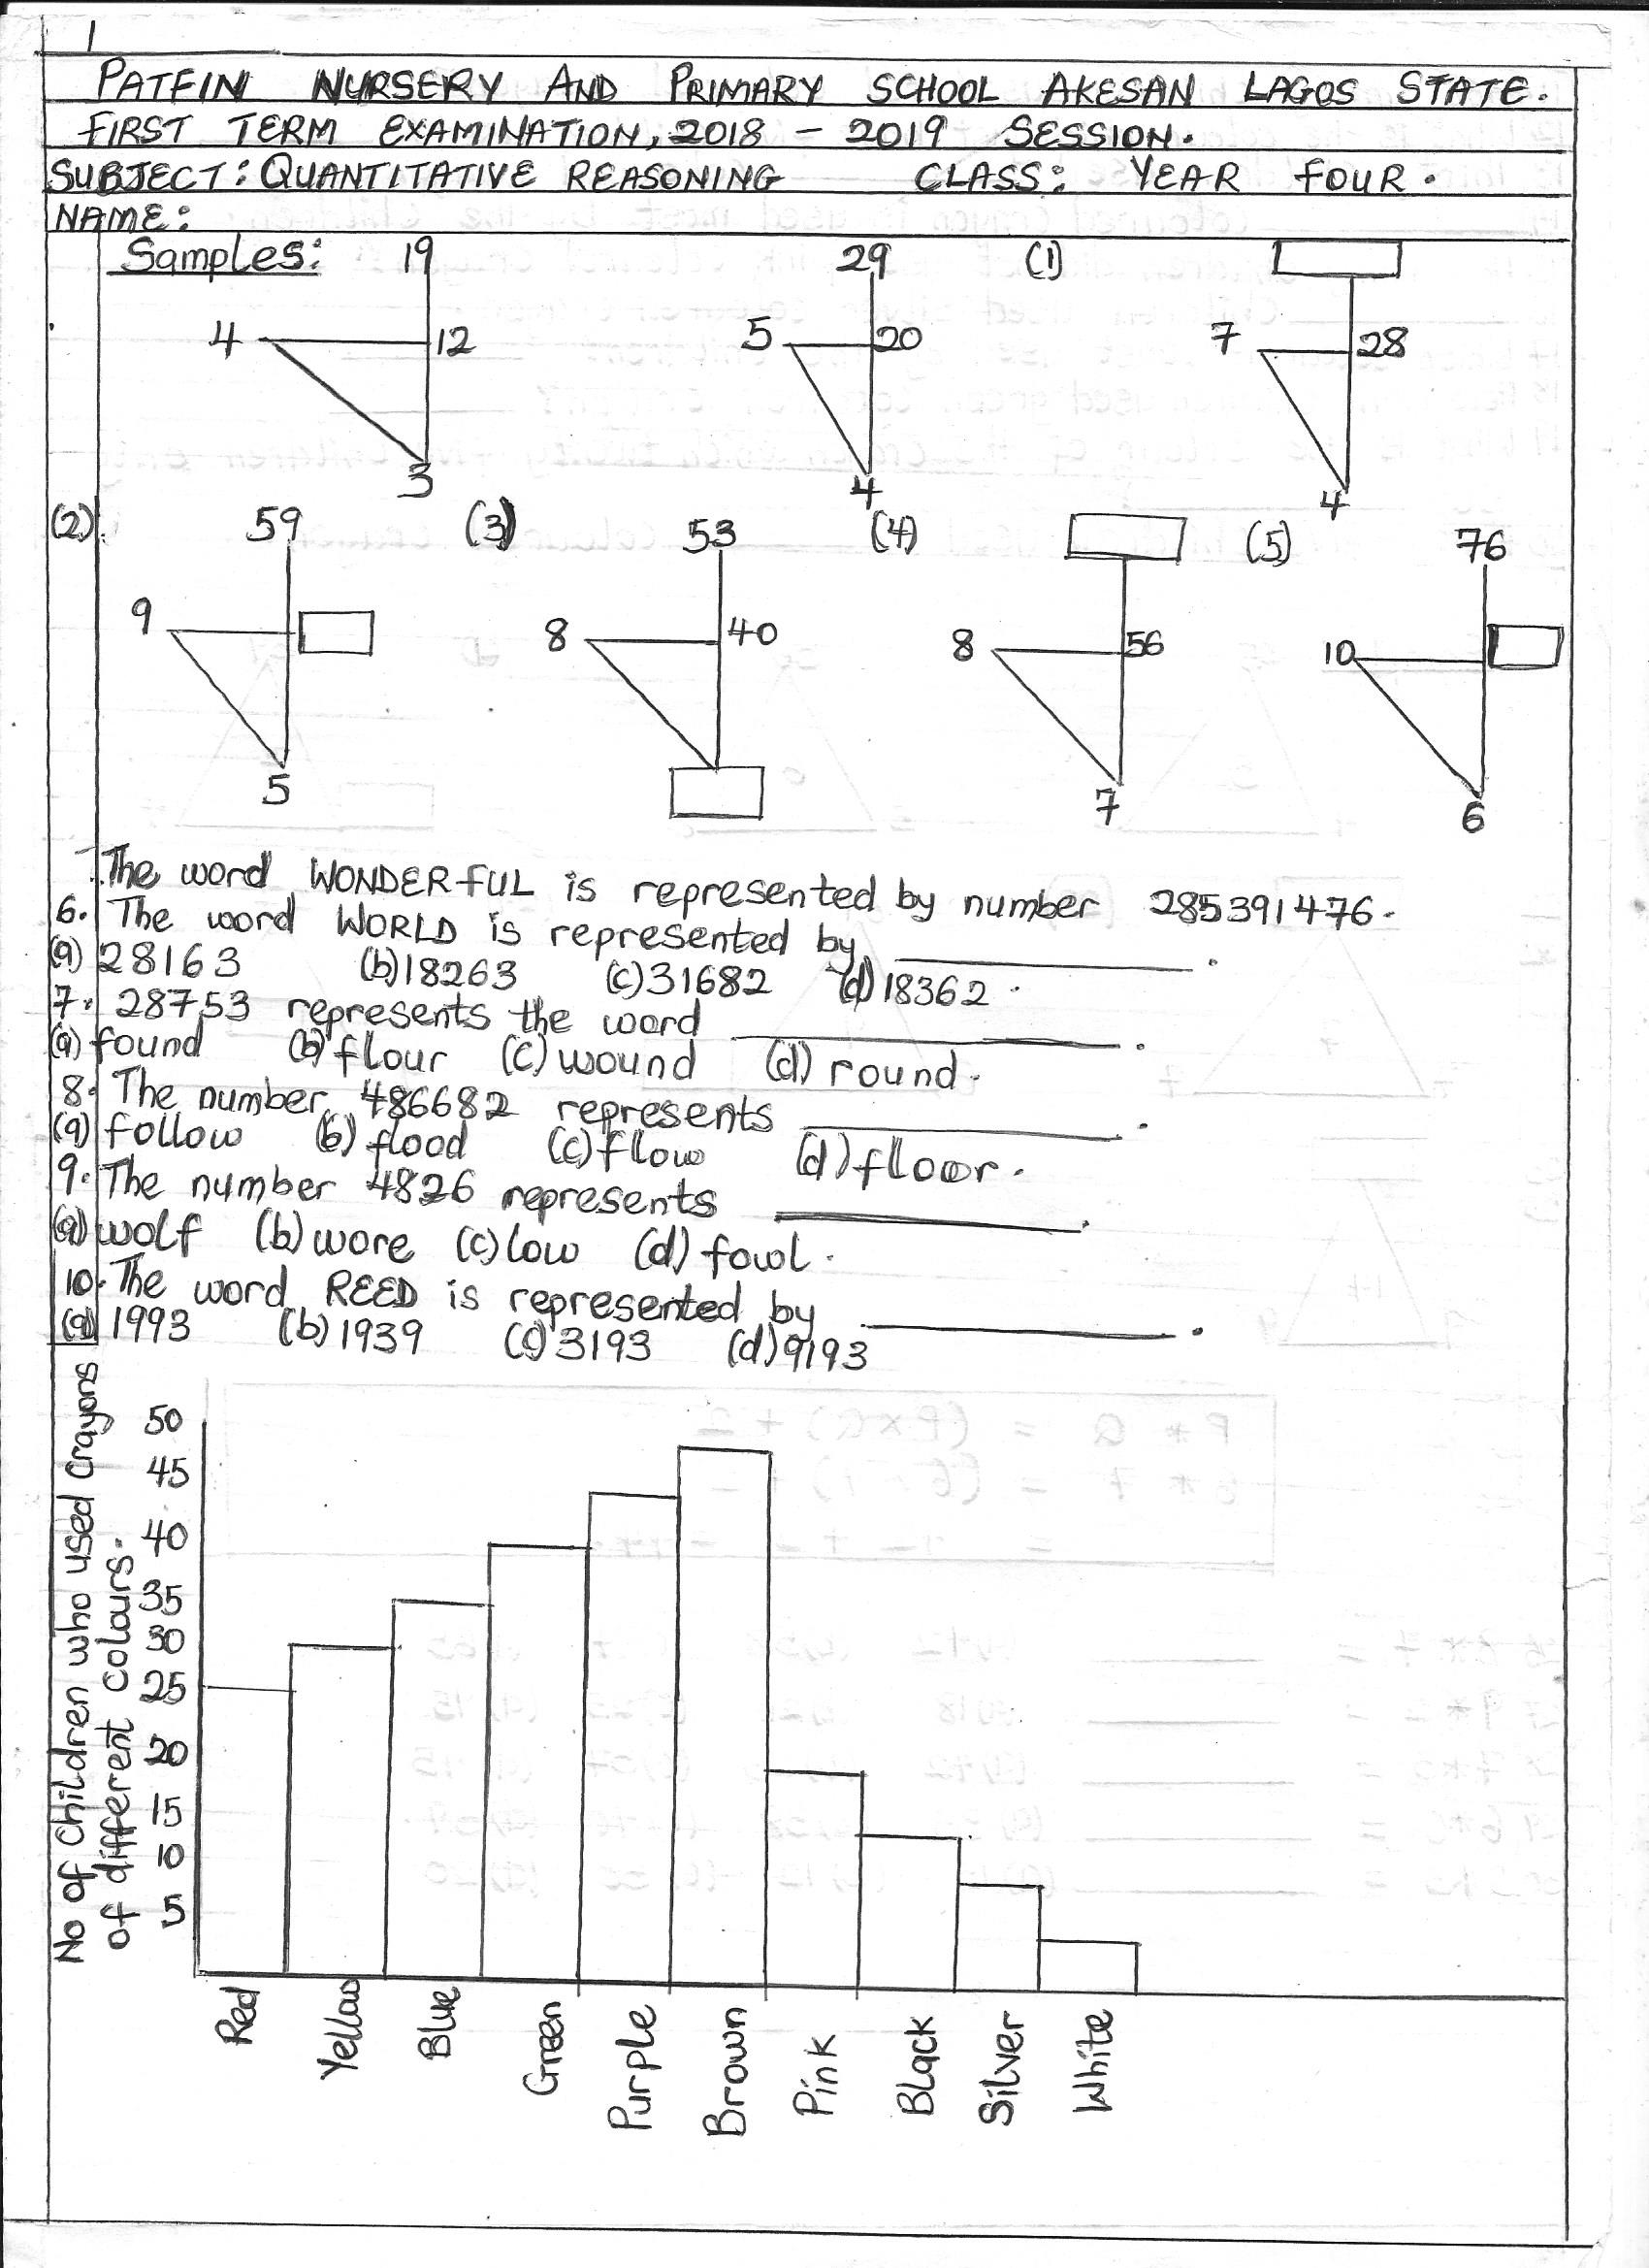 1
PATFIN NURSERY AND PRIMARY SCHOOL AKESAN LAGOS STATE.
FIRST TERM EXAMINATION, 2018 - 2019 SESSION.
SUBJECT: QUANTITATIVE REASONING CLASS: YEAR FOUR.
NAME:
Samples: 19 29 (1)
4 12 5 20 7 28
3 4 4
(2) 59 (3) 53 (4) (5) 76
9 8 40 8 56 10
5 7 6
The word WONDERFUL is represented by number 285391476.
6. The word WORLD is represented by ________.
(a) 28163 (b) 18263 (c) 31682 (d) 18362.
7. 28753 represents the word ________.
(a) found (b) flour (c) wound (d) round.
8. The number 486682 represents ________.
(a) follow (b) flood (c) flow (d) floor.
9. The number 4826 represents ________.
(a) wolf (b) wore (c) low (d) fowl.
10. The word REED is represented by ________.
(a) 1993 (b) 1939 (c) 3193 (d) 9193
No of Children who used Crayons
of different colours.
50
45
40
35
30
25
20
15
10
5
Red Yellow Blue Green Purple Brown Pink Black Silver White